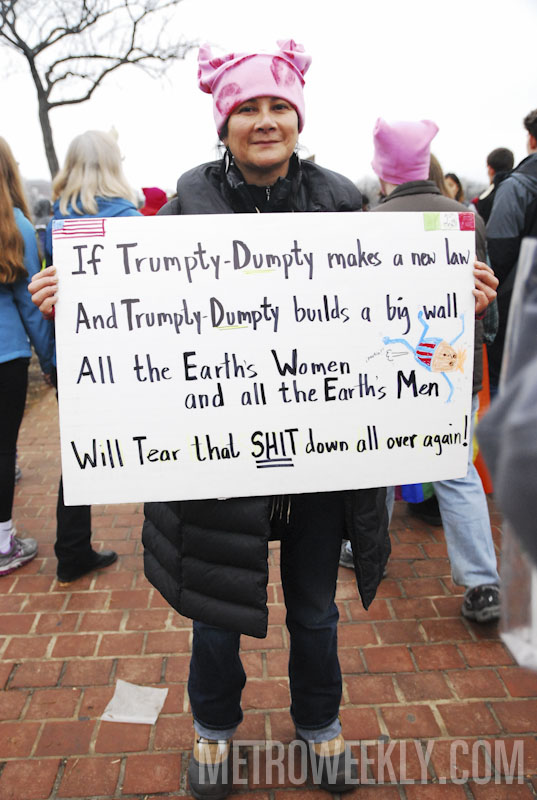 If Trumpty-Dumpty makes a new law
And Trumpty-Dumpty builds a big wall
All the Earth's Women
and all the Earth's Men
Will Tear that SHIT down all over again!
METROWEEKLY.COM